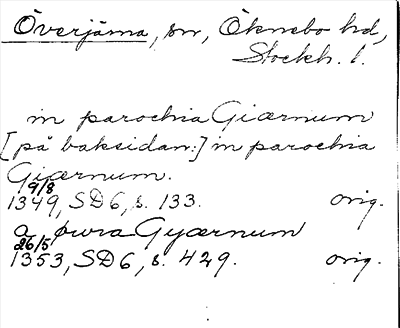 Överjärna, sn, Öknebo hd,
Stockh. l.
in parochia Giærnum
[på baksidan:] in parochia
Giærnum.
9/8
1349, SD6, s. 133. orig.
a pura Gyærnum
26/5
1353, SD6, s. 429. orig.